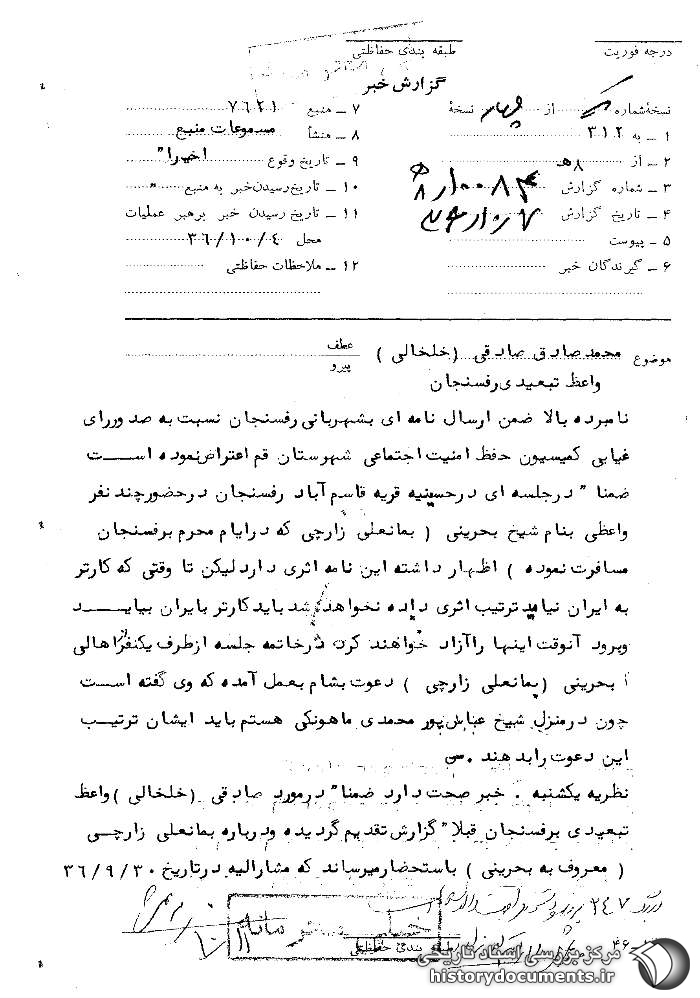 درجه فوریت
طبقه بندی حفاظتی
گزارش خبر
نسخهٔ شماره یک از چهار نسخهٔ
۱ ــ به ۳۱۲
۲ ــ از ۸ه‍
۳ ــ شماره گزارش
۴ ــ تاریخ گزارش
۵ ــ پیوست
۶ ــ گیرندگان خبر
۷ ــ منبع ۷۶۲۱
۸ ــ منشأ مسموعات منبع
۹ ــ تاریخ وقوع اخیرا"
۱۰ ــ تاریخ رسیدن خبر به منبع "
۱۱ ــ تاریخ رسیدن خبر برهبر عملیات
محل ۳۶/۱۰/۴
۱۲ ــ ملاحظات حفاظتی
موضوع محمد صادق صادقی (خلخالی)
واعظ تبعیدی رفسنجان
عطف
پیرو
نامبرده بالا ضمن ارسال نامه ای بشهربانی رفسنجان نسبت به صدور رای
غیابی کمیسیون حفظ امنیت اجتماعی شهرستان قم اعتراض نموده است
ضمنا " در جلسه ای در حسینیه قریه قاسم آباد رفسنجان در حضور چند نفر
واعظی بنام شیخ بحرینی ( بمانعلی زارچی که در ایام محرم برفسنجان
مسافرت نموده ) اظهار داشته این نامه اثری دارد لیکن تا وقتی که کارتر
به ایران نیاید ترتیب اثری داده نخواهد شد باید کارتر بایران بیاید
وبرود آنوقت اینها را آزاد خواهند کرد در خاتمه جلسه از طرف یکنفر از اهالی
از بحرینی (بمانعلی زارچی ) دعوت بشام بعمل آمده که وی گفته است
چون در منزل شیخ عباس پور محمدی ماهونکی هستم باید ایشان ترتیب
این دعوت را بدهند . س
نظریه یکشنبه . خبر صحت دارد ضمنا" در مورد صادقی (خلخالی ) واعظ
تبعیدی برفسنجان قبلا" گزارش تقدیم گردیده و درباره بمانعلی زارچی
( معروف به بحرینی ) باستحضار میرساند که مشارالیه در تاریخ ۳۶/۹/۳۰
طبقه بندی حفاظتی
مرکز بررسی اسناد تاریخی
historydocuments.ir